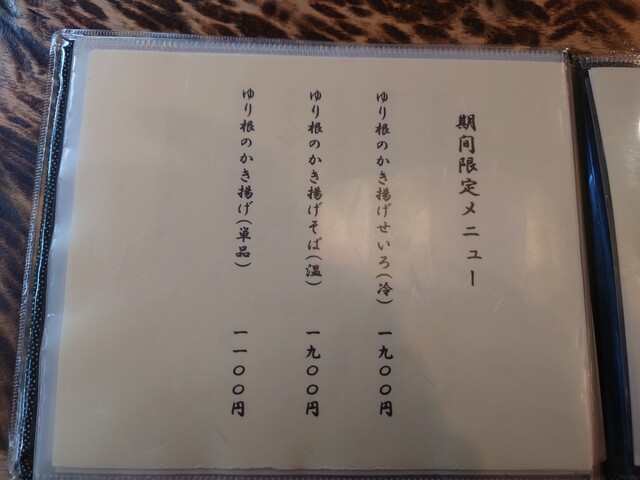 期間限定メニュー
ゆり根のかき揚げせいろ(冷) 一九〇〇円
ゆり根のかき揚げそば(温) 一九〇〇円
ゆり根のかき揚げ(単品) 一一〇〇円